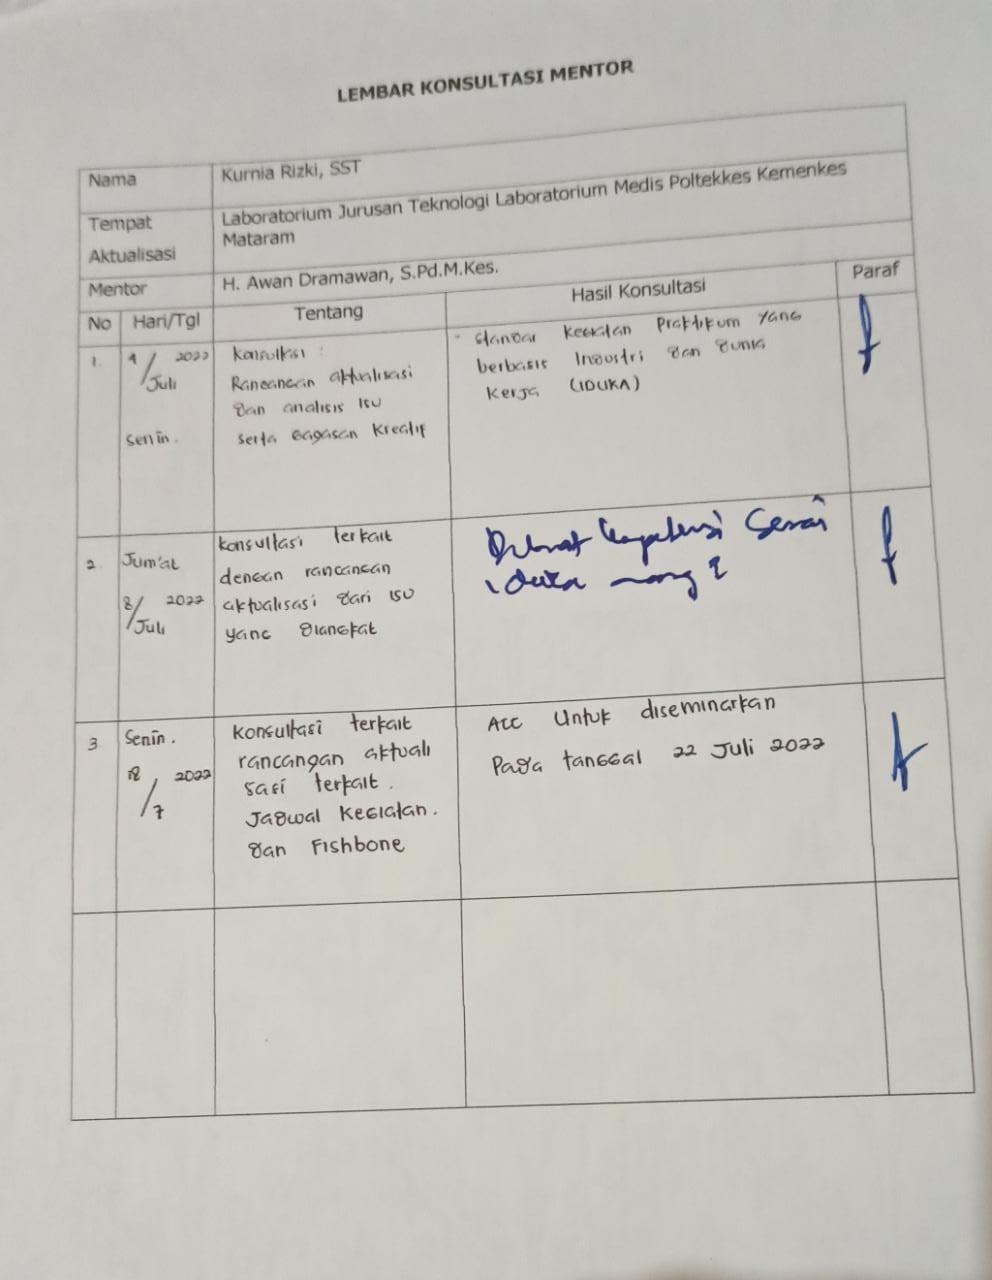 LEMBAR KONSULTASI MENTOR
Nama
Kurnia Rizki, SST
Tempat
Aktualisasi
Laboratorium Jurusan Teknologi Laboratorium Medis Poltekkes Kemenkes
Mataram
Mentor
H. Awan Dramawan, S.Pd.M.Kes.
No
Hari/Tgl
Tentang
Hasil Konsultasi
Paraf
1.
4/Juli 2022
Senin.
Konsultasi :
Rancangan aktualisasi
dan analisis ISU
serta Gagasan Kreatif
- Standar Kegiatan Praktikum Yang
berbasis Industri dan Dunia
Kerja (IDUKA)
2.
Jum'at
8/Juli 2022
Konsultasi terkait
dengan rancangan
aktualisasi dari ISU
yang diangkat
iduka
3
Senin.
18/7 2022
Konsultasi terkait
rancangan aktuali
sasi terkait.
Jadwal Kegiatan.
dan Fishbone
Acc Untuk diseminarkan
Pada tanggal 22 Juli 2022